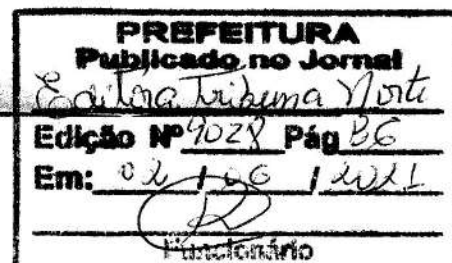 PREFEITURA
Publicado no Jornal
Editora Tribuna Norte
Edição Nº 9028 Pág B6
Em: 02 / 06 / 2021
Funcionário